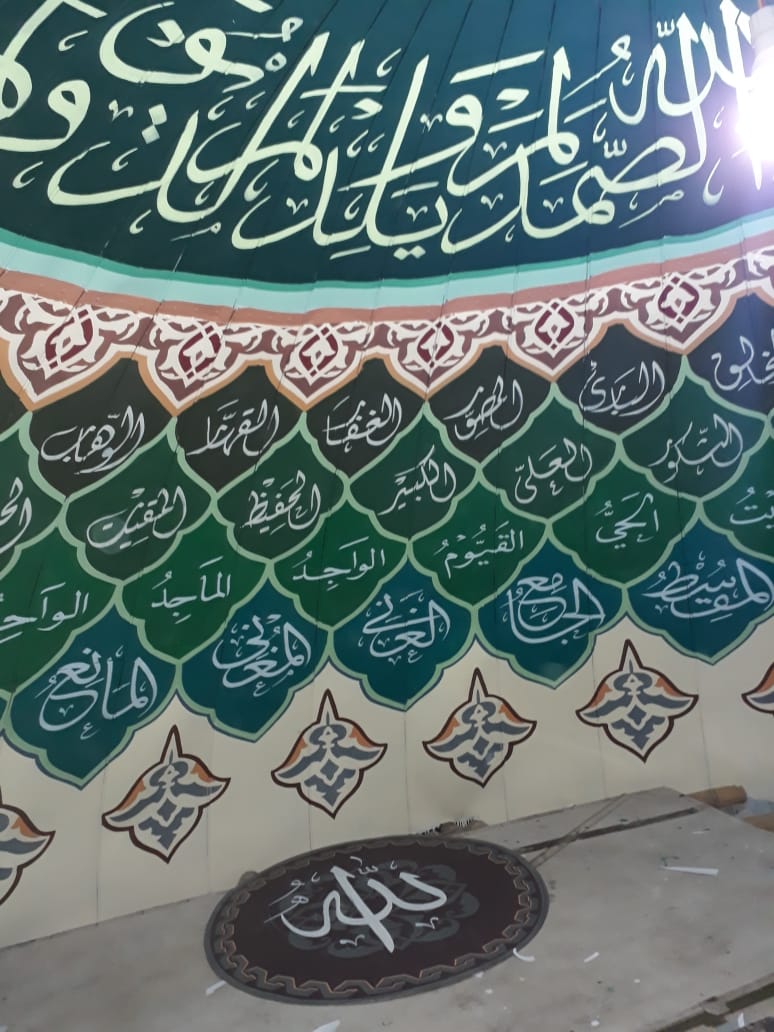 الله الصمد لم يلد ولم
الخالق البارئ المصور الغفار القهّار الوهّاب
الشكور العليّ الكبير الحفيظ المقيت
الحيُّ القَيُّومُ الوَاجِدُ المَاجِدُ الوَاحِدُ
المقسط الجامع الغني المغني المانع
الله